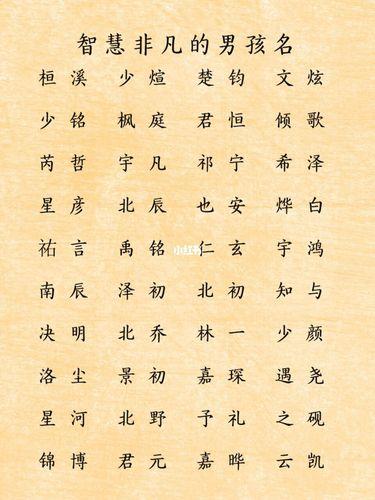 智慧非凡的男孩名
桓溪 少煊 楚钧 文炫
少铭 枫庭 君恒 倾歌
芮哲 宇凡 祁宁 希泽
星彦 北辰 也安 烨白
祐言 禹铭 仁玄 宇鸿
小红书
南辰 泽初 北初 知与
决明 北乔 林一 少颜
洛尘 景初 嘉琛 遇尧
星河 北野 予礼 之砚
锦博 君元 嘉晔 云凯